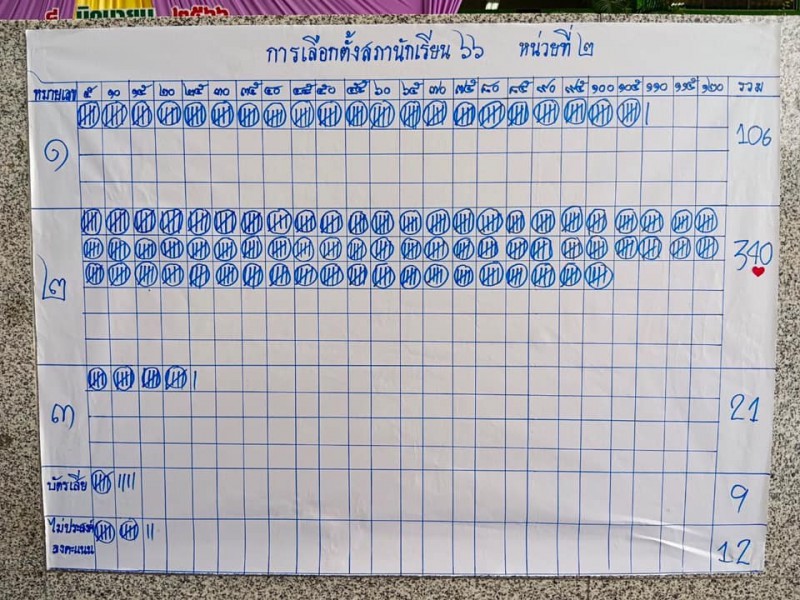 ๕ มิถุนายน ๒๕๖๖
การเลือกตั้งสภานักเรียน ๖๖ หน่วยที่ ๒
หมายเลข ๕ ๑๐ ๑๕ ๒๐ ๒๕ ๓๐ ๓๕ ๔๐ ๔๕ ๕๐ ๕๕ ๖๐ ๖๕ ๗๐ ๗๕ ๘๐ ๘๕ ๙๐ ๙๕ ๑๐๐ ๑๐๕ ๑๑๐ ๑๑๕ ๑๒๐ รวม
๑ 106
๒ 340
๓ 21
บัตรเสีย 9
ไม่ประสงค์
ลงคะแนน 12